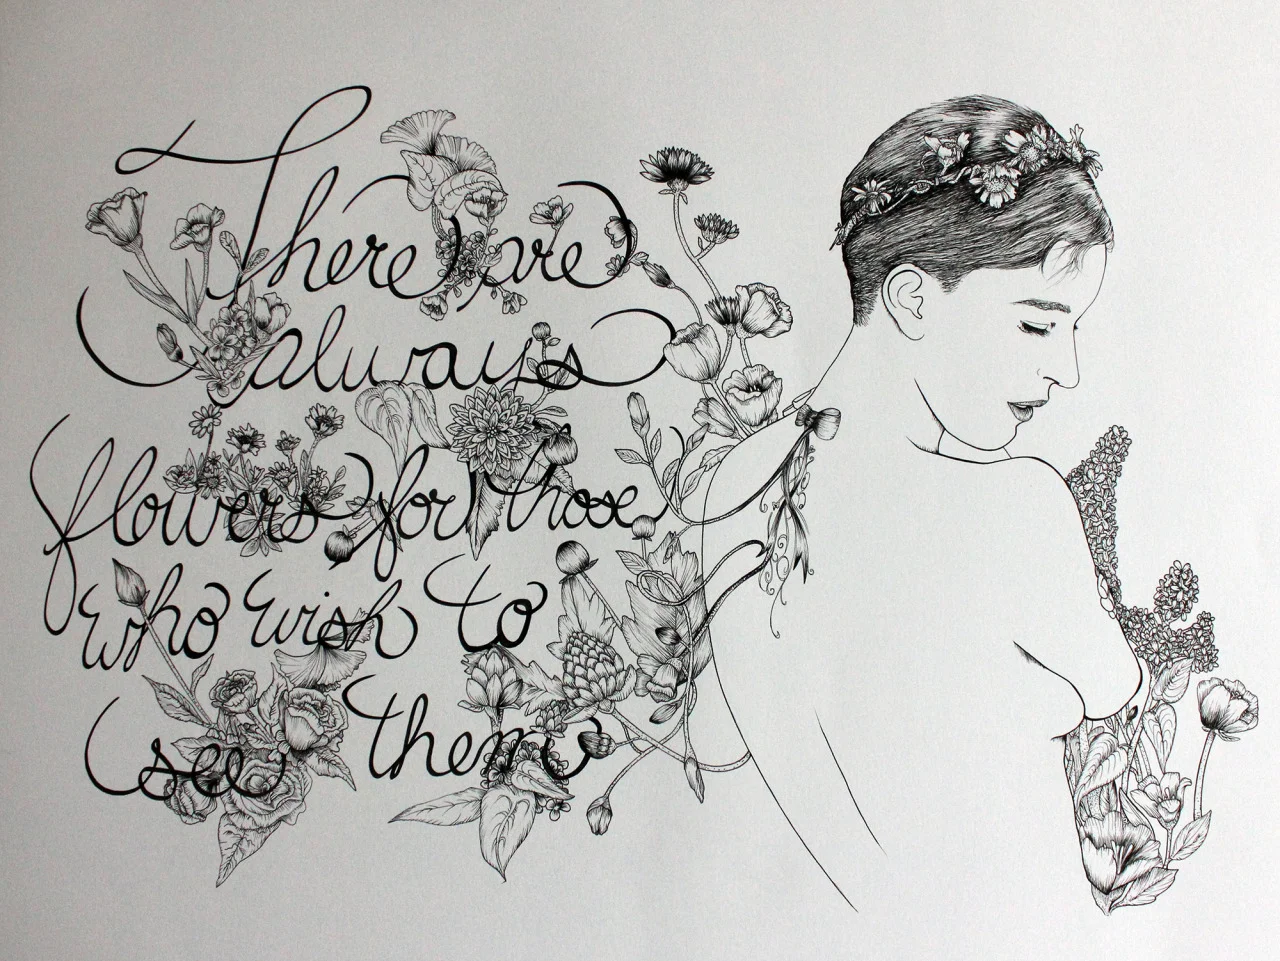 There are
always
flowers for those
who wish to
see them